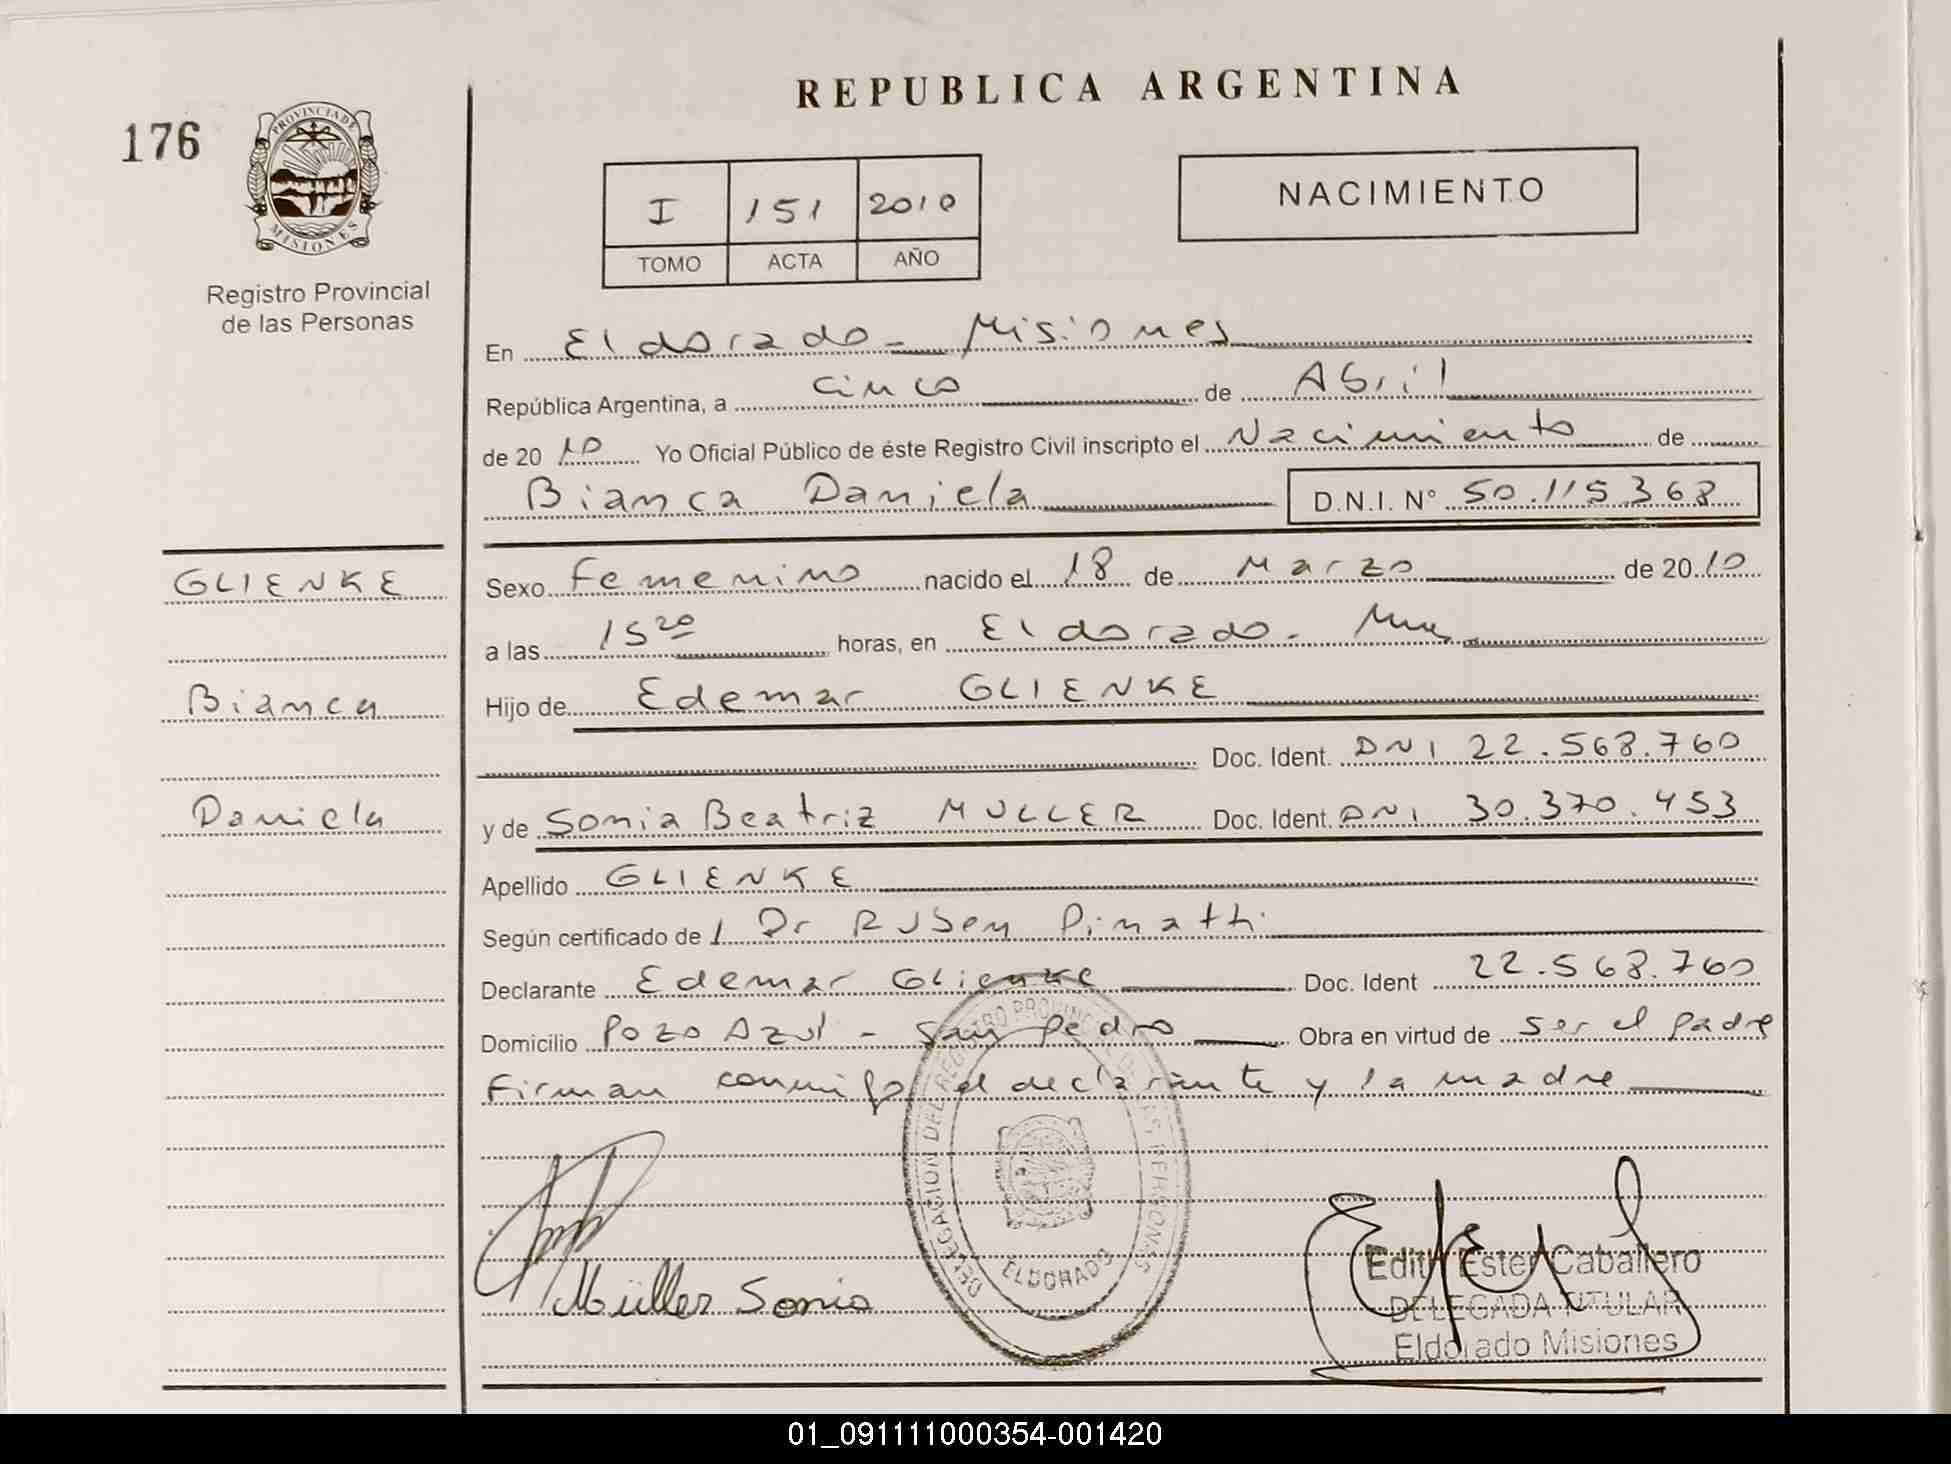 REPUBLICA ARGENTINA
176
PROVINCIA DE
MISIONES
Registro Provincial
de las Personas
I 151 2010
TOMO ACTA AÑO
NACIMIENTO
En Eldorado - Misiones
República Argentina, a cinco de Abril
de 2010 Yo Oficial Público de éste Registro Civil inscripto el Nacimiento de
Bianca Daniela D.N.I. N° 50.115.368
GLIENKE
Bianca
Daniela
Sexo Femenino nacido el 18 de Marzo de 2010
a las 15 20 horas, en Eldorado - Mnes
Hijo de Edemar GLIENKE
Doc. Ident. DNI 22.568.760
y de Sonia Beatriz MULLER Doc. Ident. DNI 30.370.453
Apellido GLIENKE
Según certificado de / Dr Ruben Pinatti
Declarante Edemar Glienke Doc. Ident 22.568.760
Domicilio Pozo Azul - San Pedro Obra en virtud de ser el padre
Firman conmigo el declarante y la madre
DELEGACION DEL REGISTRO PROVINCIAL DE LAS PERSONAS
ELDORADO
Müller Sonia
Edith Ester Caballero
DELEGADA TITULAR
Eldorado Misiones
01_091111000354-001420